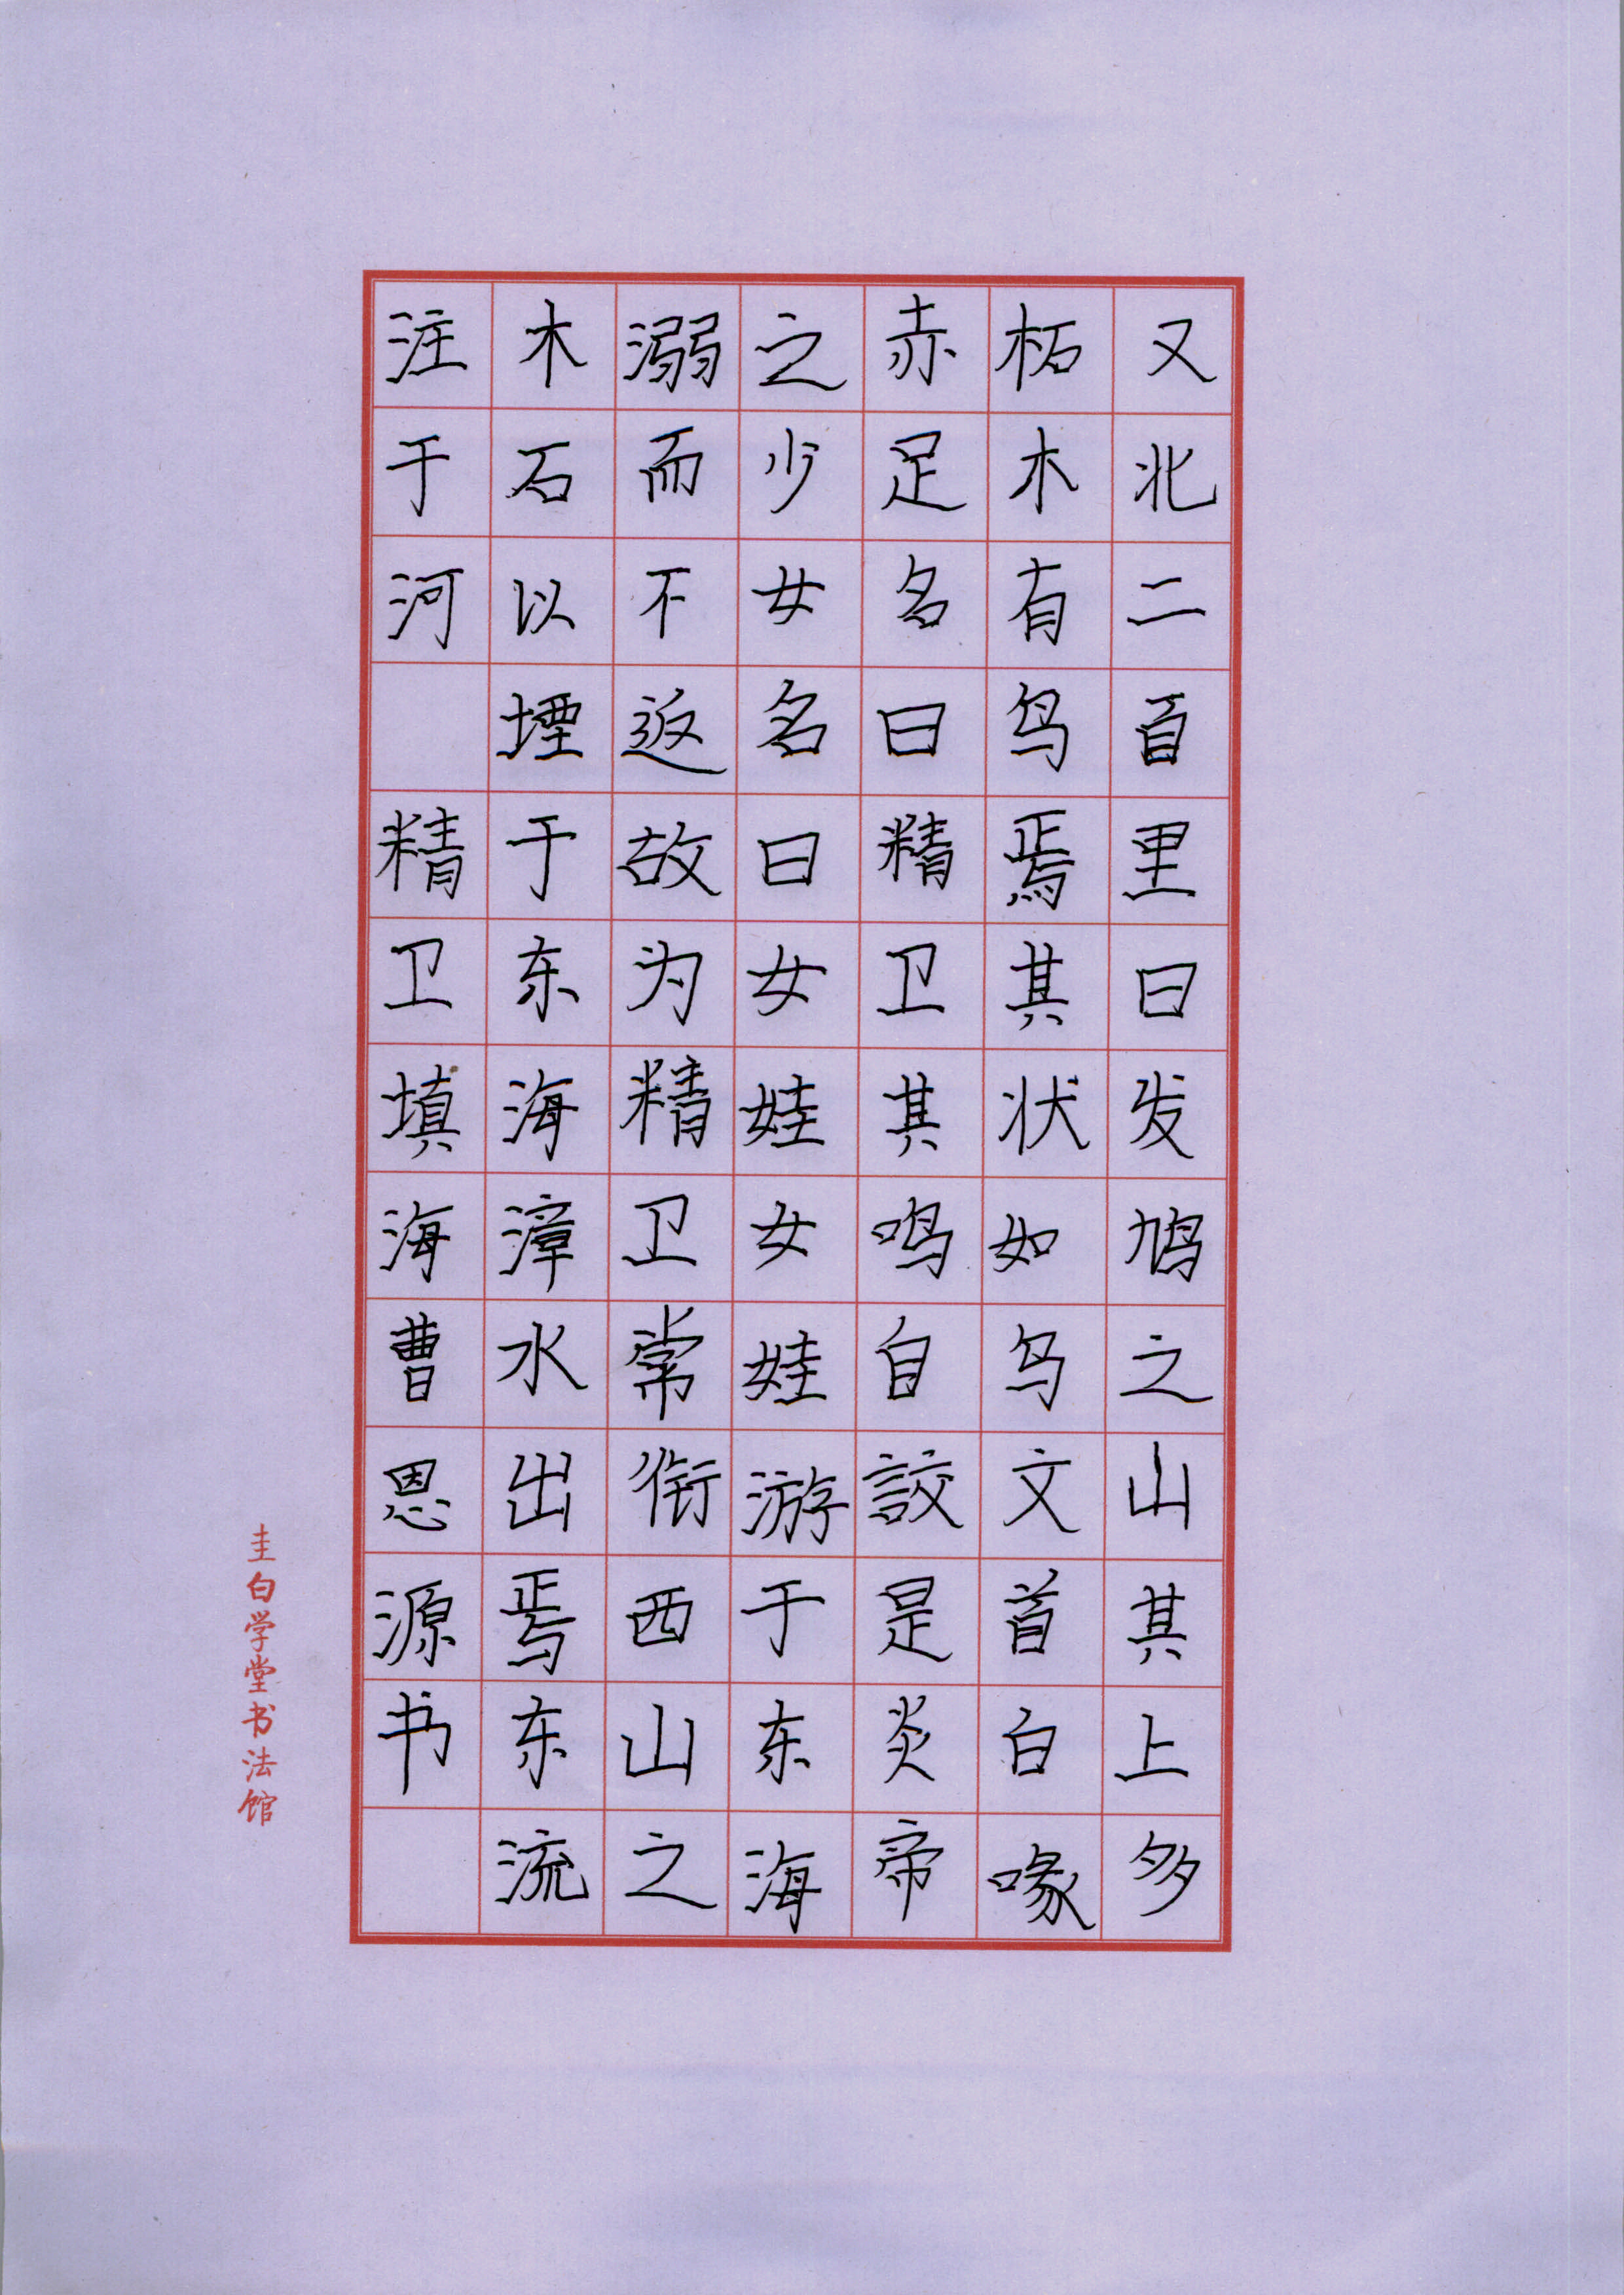 又北二百里曰发鸠之山其上多
柘木有鸟焉其状如乌文首白喙
赤足名曰精卫其鸣自詨是炎帝
之少女名曰女娃女娃游于东海
溺而不返故为精卫常衔西山之
木石以堙于东海漳水出焉东流
注于河 精卫填海曹恩源书
圭白学堂书法馆